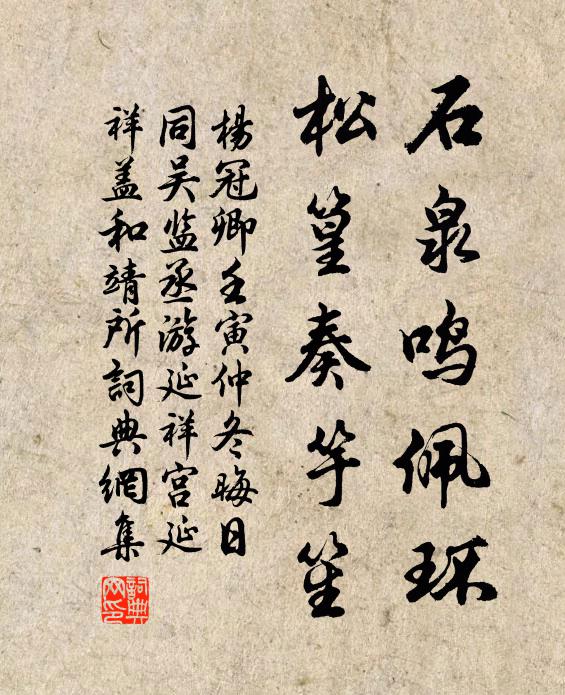 石泉鸣佩环
松篁奏竽笙
楊冠卿壬寅仲冬晦日
同吴监丞游延祥宫延
祥盖和靖所詞典網集
詞典網印